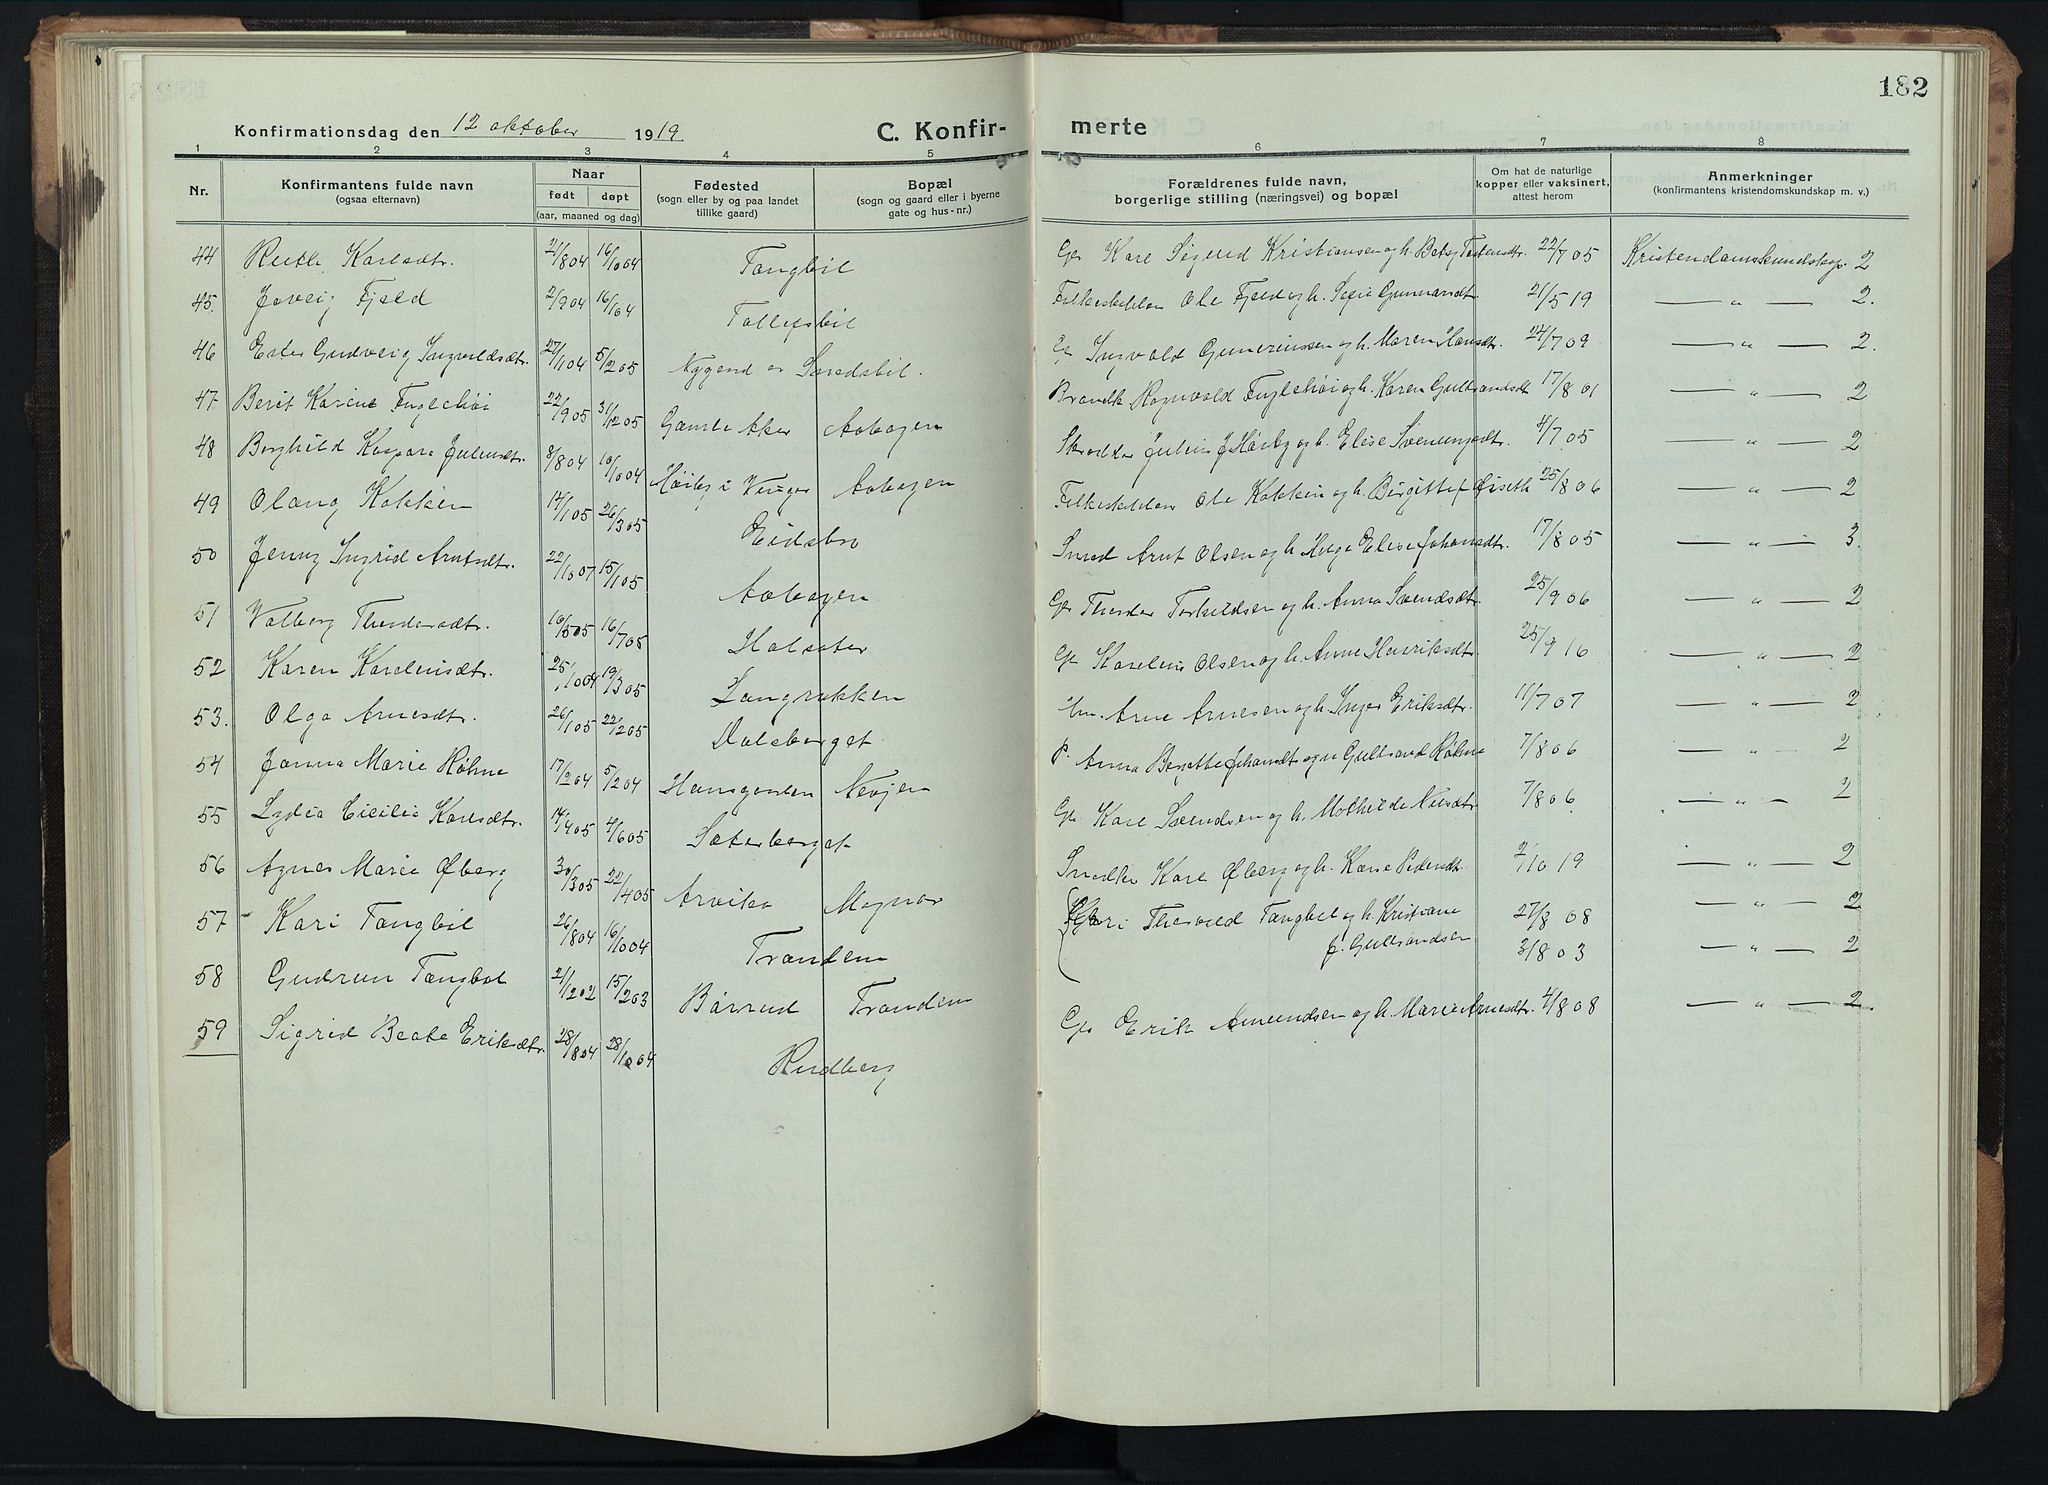 182
Konfirmationsdag den 12 oktober 1919 C. Konfir- merte
1 2 3 4 5 6 7 8
Nr. Konfirmantens fulde navn (ogsaa efternavn) Naar født døpt (aar, maaned og dag) Fødested (sogn eller by og paa landet tillike gaard) Bopæl (sogn og gaard eller i byerne gate og hus-nr.) Forældrenes fulde navn, borgerlige stilling (næringsvei) og bopæl Om hat de naturlige kopper eller vaksinert, attest herom Anmerkninger (konfirmantens kristendomskundskap m. v.)
44 Ruth Karlsdtr. 21/804 16/1004 Tangbøl Gb Karl Sigurd Kristiansen og h. Betsy Torstensdtr 22/705 Kristendomskundskap 2
45. Fjeld 2/904 16/104 Tollefsbøl Ole Fjeld og h. Sofie Gunnarsdtr 21/519 — " — 2.
46 Ester Gudveig Ingvoldsdtr. 27/1104 5/205 Nygard av Ingvold Guneriussen og h. Maren Hansdtr. 24/709 — " — 2.
47 Berit Karine Fuglehøi 22/905 31/1205 Gamle Aker Aabogen Ragnvald Fuglehøi og h. Karen Gulbrandsdtr 17/801 — " — 2
48 Borghild Kaspara Juliusdtr. 8/804 10/1004 i Vinger Aabogen Skredder Julius J Hårby og h. Elise Svenungsdtr. 4/705 — " — 2
49 Olaug Kokkin 14/105 26/305 Eidsbro Ole Kokkin og h. Birgitte Øiseth 25/806 — " — 2
50 Jenny Ingrid Arntsdtr. 22/1007 15/105 Aabogen Smed Arnt Olsen og h. Helga Elise Johansdtr. 17/805 — " — 3.
51 Valborg Thordarsdtr. 16/505 16/705 Gb Thordar Torkildsen og h. Anna Svendsdtr. 25/906 — " — 2
52 Karen Kareliusdtr. 25/1004 19/305 Langrukken Gb Karelius Olsen og h. Anne Henriksdtr 25/916 — " — 2
53. Olga Arnesdtr. 26/105 22/205 Dalsberget Arne Arnesen og h. Inger Eriksdtr. 11/707 — " — 2
54 Janna Marie Røhne 17/204 5/204 Nevjen P. Anna Johansdtr og u Gulbrand Røhne 7/806 — " — 2
55 Lydia Cicilia Karlsdtr. 14/405 4/605 Sæterberget Gb Karl Svendsen og h. Mathilde Nilsdtr 7/806. — " — 2
56 Agnes Marie Øberg 30/305 22/405 Arvika Magnor Karl Øberg og h. Karie Pedersdtr. 2/1019 — " — 2
57 Kari Tangbøl 26/804 16/1004 Trandem Thorvald Tangbøl og h. Kristiane f. Gulbrandsen 27/808 — " — 2
58 Gudrun Tangbøl 21/1202 15/203 Bårrud Trandem 31/803 — " — 2
59 Sigrid Beate Eriksdtr. 28/804 28/1004 Rudberg Gb Erik Amundsen og h. Marie Arnesdtr. 4/808 — " — 2